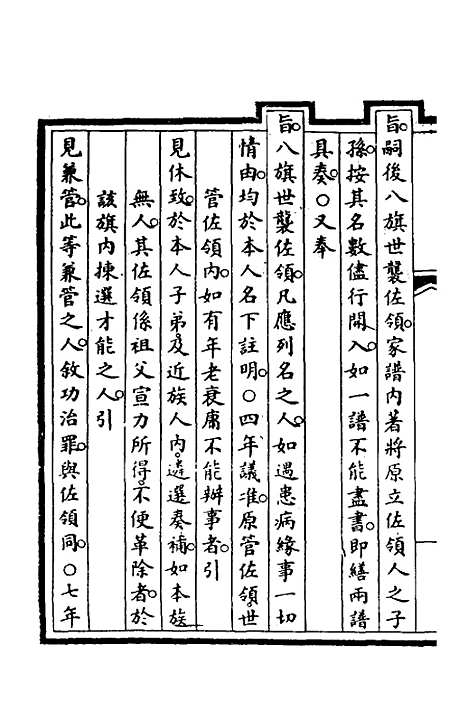 旨。嗣後八旗世襲佐領。家譜內著將原立佐領人之子
孫。按其名數儘行開入。如一譜不能盡書。即繕兩譜
具奏。○又奉
旨。八旗世襲佐領。凡應列名之人。如遇患病緣事一切
情由。均於本人名下註明。○四年議准。原管佐領。世
管佐領內。如有年老衰庸不能辦事者。引
見休致。於本人子弟。及近族人內。遴選奏補。如本族
無人。其佐領係祖父宣力所得。不便革除者。於
該旗內揀選才能之人。引
見兼管。此等兼管之人。敘功治罪。與佐領同。○七年